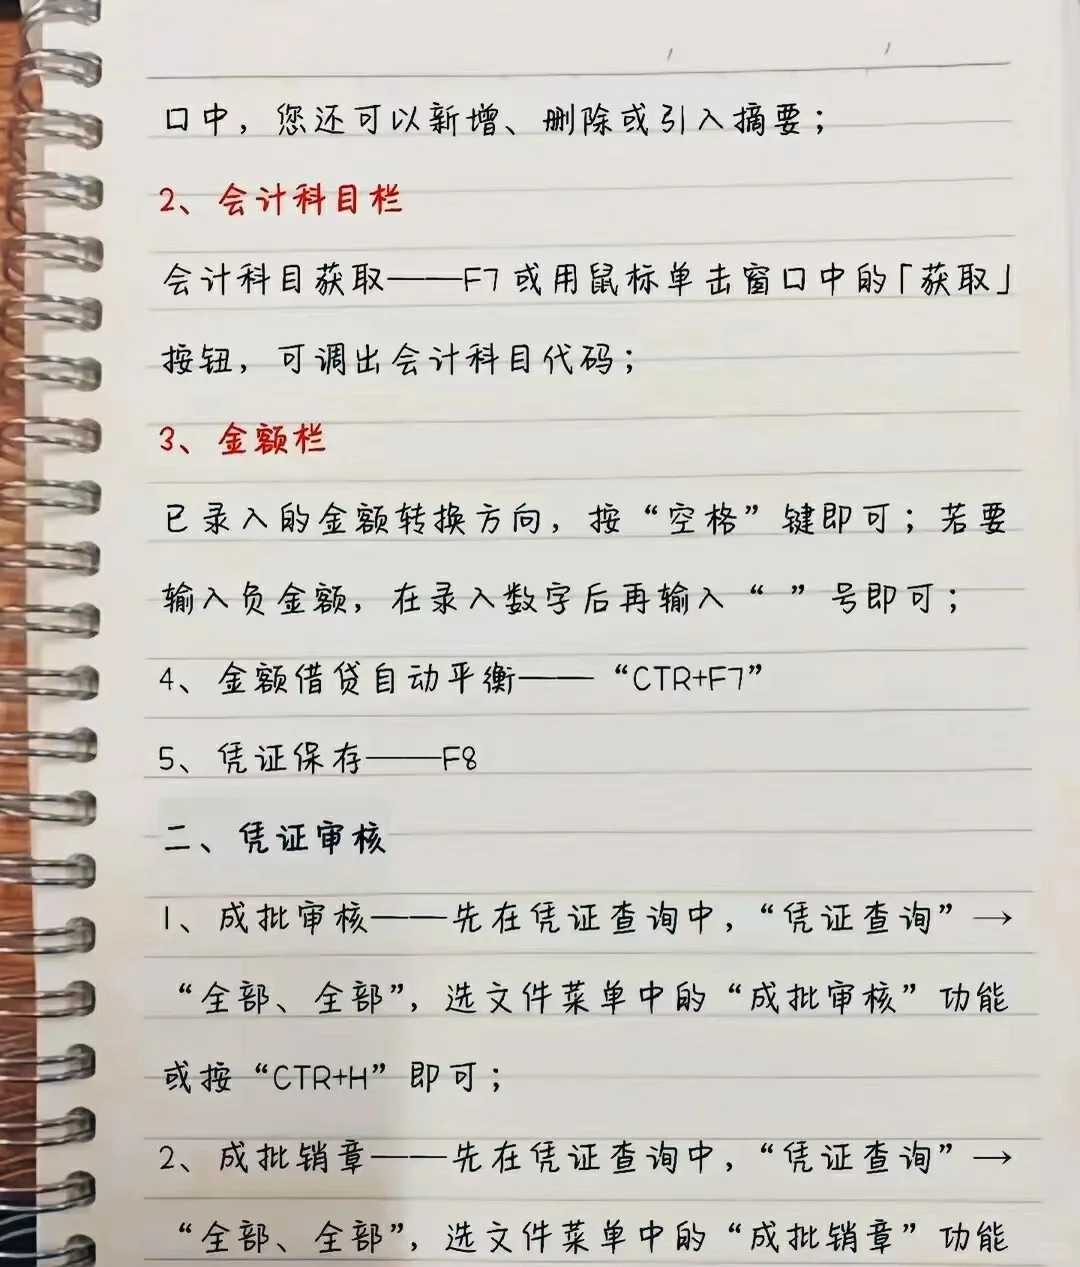 口中，您还可以新增、删除或引入摘要；
2、会计科目栏
会计科目获取——F7或用鼠标单击窗口中的「获取」
按钮，可调出会计科目代码；
3、金额栏
已录入的金额转换方向，按“空格”键即可；若要
输入负金额，在录入数字后再输入“ ”号即可；
4、金额借贷自动平衡——“CTR+F7”
5、凭证保存——F8
二、凭证审核
1、成批审核——先在凭证查询中，“凭证查询”→
“全部、全部”，选文件菜单中的“成批审核”功能
或按“CTR+H”即可；
2、成批销章——先在凭证查询中，“凭证查询”→
“全部、全部”，选文件菜单中的“成批销章”功能